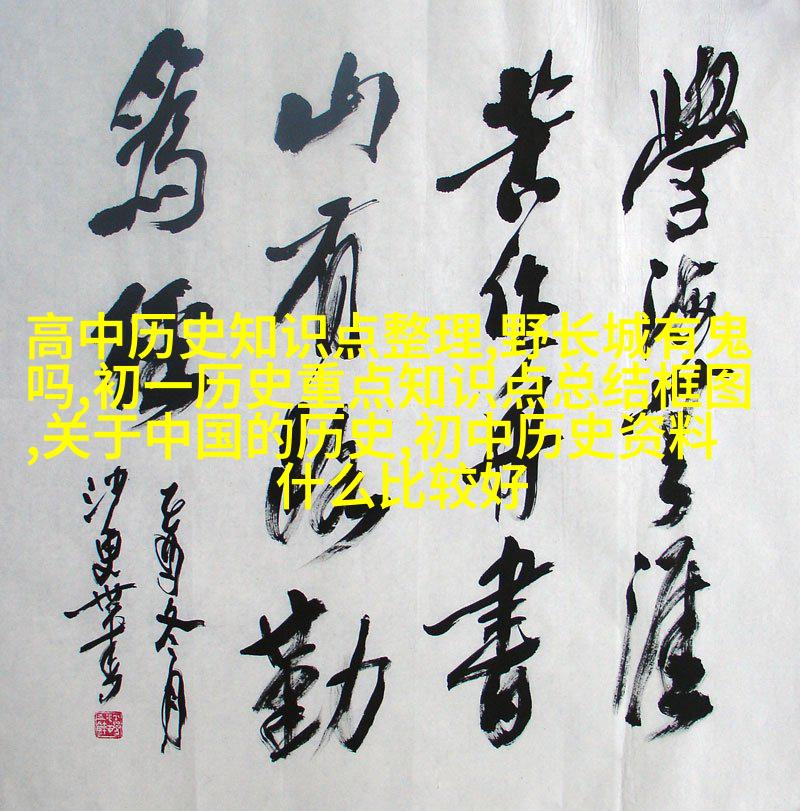 高中历史知识点整理,野长城有鬼
吗,初一历史重点知识点总结框图
,关于中国的历史,初中历史资料
什么比较好
學海無涯
苦作舟書
山有路勤
為徑
乙酉冬月
沙更世書